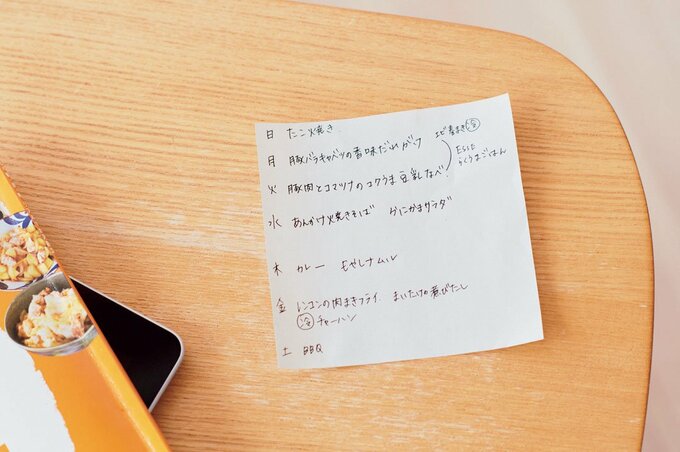 日 たこ焼き
月 豚バラキャベツの香味だれがけ エビ春まき冷
火 豚肉とコマツナのコクうま豆乳なべ
ESSE
らくうまごはん
水 あんかけ焼きそば かにかまサラダ
木 カレー もやしナムル
金 レンコンの肉まきフライ まいたけの煮びたし
冷チャーハン
土 BBQ